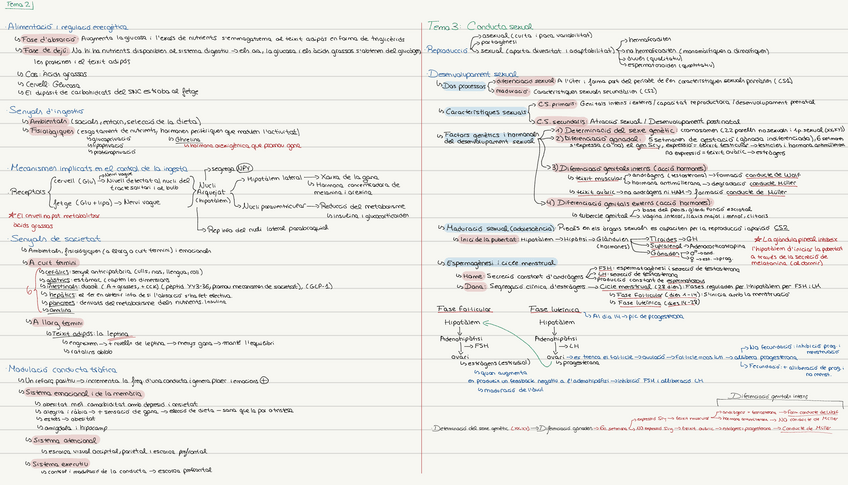 Tema 2
Alimentació i regulació energètica
↳ Fase d'absorció: Augmenta la glucosa i l'excés de nutrients s'emmagatzema al teixit adipós en forma de triglicèrids
↳ Fase de dejú: No hi ha nutrients disponibles al sistema digestiu → els aa, la glucosa i els àcids grassos s'obtenen del glucogen,
les proteïnes i el teixit adipós
↳ Cos: Àcids grassos
↳ Cervell: Glucosa
↳ El dipòsit de carbohidrats del SNC es troba al fetge
Senyals d'ingesta
↳ Ambientals (socials, entorn, selecció de la dieta)
↳ Fisiològiques (esgotament de nutrients, hormones perifèriques que modulen l'activitat)
↳ glucoprivació
↳ lipoprivació
↳ Ghrelina
↳ hormona orexigènica que promou gana
Mecanismes implicats en el control de la ingesta
Receptors
cervell (Glu)
Nervi vague
Nivell detectat al nucli del
tracte solitari i al bulb
fetge (Glu + lípids) → Nervi vague
Nucli
Arquejat
(hipotàlem)
segrega NPY
Hipotàlem lateral → Xarxa de la gana
↳ Hormona concentradora de
melanina i orexina
Nucli paraventricular → Reducció del metabolisme
↳ insulina i glucocorticoides
Rep info del nucli lateral parabraquial
* El cervell no pot metabolitzar
àcids grassos
Senyals de sacietat
↳ Ambientals, fisiològiques (a llarg o curt termini) i emocionals
↳ A curt termini
↳ cefàlics: senyal anticipatòria (ulls, nas, llengua, coll)
↳ gàstrics: estómac (capten les dimensions)
↳ hepàtics: el fetge obtén info de si l'absorció s'ha fet efectiva
↳ pàncrees: derivats del metabolisme dels nutrients. Insulina
↳ amilina
↳ A llarg termini
↳ Teixit adipós: la leptina
↳ engreixem → + nivells de leptina → menys gana → manté l'equilibri
Modulació conducta tròfica
↳ Un reforç positiu → incrementa la freq. d'una conducta i genera plaer i emocions +
↳ Sistema emocional i de la memòria
↳ obesitat: molt comorbiditat amb depressió i ansietat
↳ estrès → obesitat
↳ amígdala i hipocamp
↳ Sistema atencional
↳ escorça visual occipital, parietal i escorça prefrontal
↳ Sistema executiu
↳ control i modificació de la conducta → escorça prefrontal
Tema 3: Conducta sexual
Reproducció
asexual (curta i poca variabilitat)
↳ partogènesi
sexual (aporta diversitat i adaptabilitat)
hermafroditisme
no hermafroditisme (monomòrfiques o dimòrfiques)
òvuls (qualitatiu)
espermatozoides (quantitatiu)
Desenvolupament sexual
↳ Dos processos
diferenciació sexual: A l'úter i forma part del període de l'on característiques sexuals primàries (CS1)
maduració: Característiques sexuals secundàries (CS2)
↳ Característiques sexuals
C.S. primàries: Genitals interns i externs / capacitat reproductora / desenvolupament prenatal
C.S. secundàries: Atracció sexual / Desenvolupament postnatal
↳ Factors genètics i hormonals
del desenvolupament sexual
1) Determinació del sexe genètic: cromosomes (22 parells no sexuals i 1 p. sexual (XX/XY))
2) Diferenciació gonadal: 5 setmanes de gestació (gònada indiferenciada), 6 setmanes
↳ s'expressa (♂) o no (♀) el gen Sry: expressió = teixit testicular → testicles i hormona antimülleriana
no expressió = teixit ovàric → estrògens
3) Diferenciació genitals interns (acció hormones)
↳ teixit testicular
andrògens (testosterona) → formació conducte de Wolff
hormona antimülleriana → degradació conducte Müller
↳ teixit ovàric → no andrògens ni HAM → formació conducte de Müller
4) Diferenciació genitals externs (acció hormones)
↳ tubercle genital
base del penis, gland, funció escrotal
vagina inferior, llavis major i menor, clítoris
↳ Maduració sexual (adolescència): Procés on els òrgans sexuals es capaciten per la reproducció i aparició CS2
↳ Inici de la pubertat: Hipotàlem → Hipòfisi → Glàndules
(hormones)
Tiroides → GH
Suprarenal → Adrenocorticotropina
Gònades
♂ → test.
♀ → est. → prog.
* La glàndula pineal inhibeix
l'hipotàlem d'iniciar la pubertat
a través de la secreció de
melatonina (al dormir)
↳ Espermatogènesi i cicle menstrual
↳ Home: Secreció constant d'andrògens
FSH: espermatogènesi i secreció de testosterona
LH: secreció de testosterona
producció constant de espermatozous
↳ Dona: Segregació cíclica d'estrògens → Cicle menstrual (28 dies): Fases regulades per l'hipotàlem per FSH i LH
↳ Fase Fol·licular (dies 1-14): S'inicia amb la menstruació
↳ Fase Luteínica (dies 14-28)
Fase Fol·licular
Fase luteínica
↳ Al dia 14 → pic de progesterona
Hipotàlem
Hipotàlem
Adenohipòfisi
Adenohipòfisi
→ FSH
→ LH
ovari
↳ estrògens (estradiol)
↳ quan augmenta
ovari → es trenca el fol·licle → ovulació → fol·licle incús LH → allibera progesterona
↳ progesterona
→ No fecundació: inhibició prog.
menstruació
↳ Fecundació: + alliberació de prog.
no menst.
es produeix un feedback negatiu a l'adenohipòfisi → inhibició FSH i alliberació LH
↳ maduració de l'òvul
Diferenciació genitals interns
Determinació del sexe genètic (XX/XY) → Diferenciació gònades → 6a setmana
expressió Sry → teixit testicular
andrògens → testosterona → Form conducte de Wolff
hormona antimülleriana → NO conducte de Müller
NO expressió Sry → teixit ovàric → estrògens i progesterona → Conducte de Müller